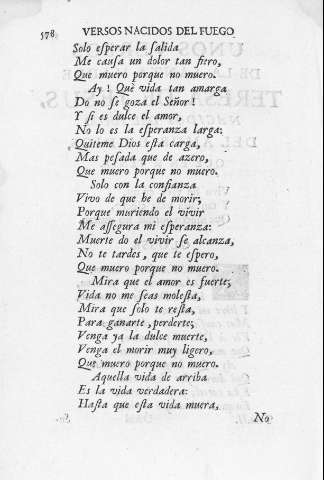 578 VERSOS NACIDOS DEL FUEGO
Solo eſperar la ſalida
Me cauſa un dolor tan fiero,
Que muero porque no muero.
Ay! Què vida tan amarga
Do no ſe goza el Señor!
Y ſi es dulce el amor,
No lo es la eſperanza larga:
Quiteme Dios eſta carga,
Mas peſada que de azero,
Que muero porque no muero.
Solo con la confianza
Vivo de que he de morir;
Porque muriendo el vivir
Me aſſegura mi eſperanza:
Muerte do el vivir ſe alcanza,
No te tardes, que te eſpero,
Que muero porque no muero.
Mira que el amor es fuerte;
Vida no me ſeas moleſta,
Mira que ſolo te reſta,
Para ganarte, perderte;
Venga ya la dulce muerte,
Venga el morir muy ligero,
Que muero porque no muero.
Aquella vida de arriba
Es la vida verdadera:
Haſta que eſta vida muera,
No